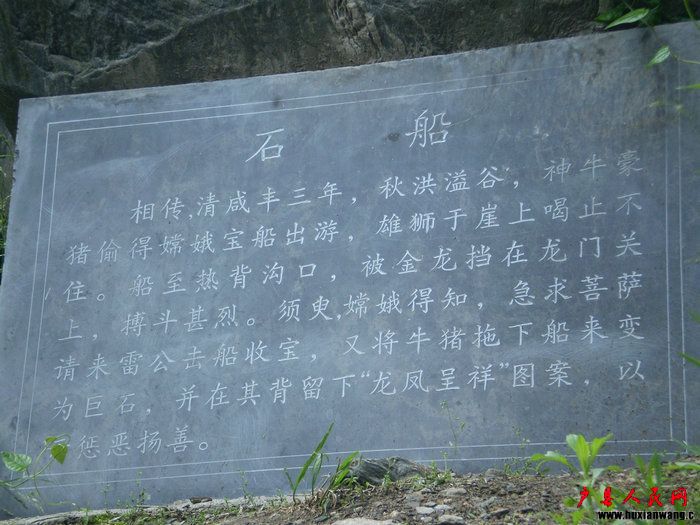 石 船
相传,清咸丰三年，秋洪溢谷，神牛豪
猪偷得嫦娥宝船出游，雄狮于崖上喝止不
住。船至热背沟口，被金龙挡在龙门关
上，搏斗甚烈。须臾,嫦娥得知，急求菩萨
请来雷公击船收宝，又将牛猪拖下船来变
为巨石，并在其背留下“龙凤呈祥”图案，以
惩恶扬善。
户县人民网
www.huxianwang.c